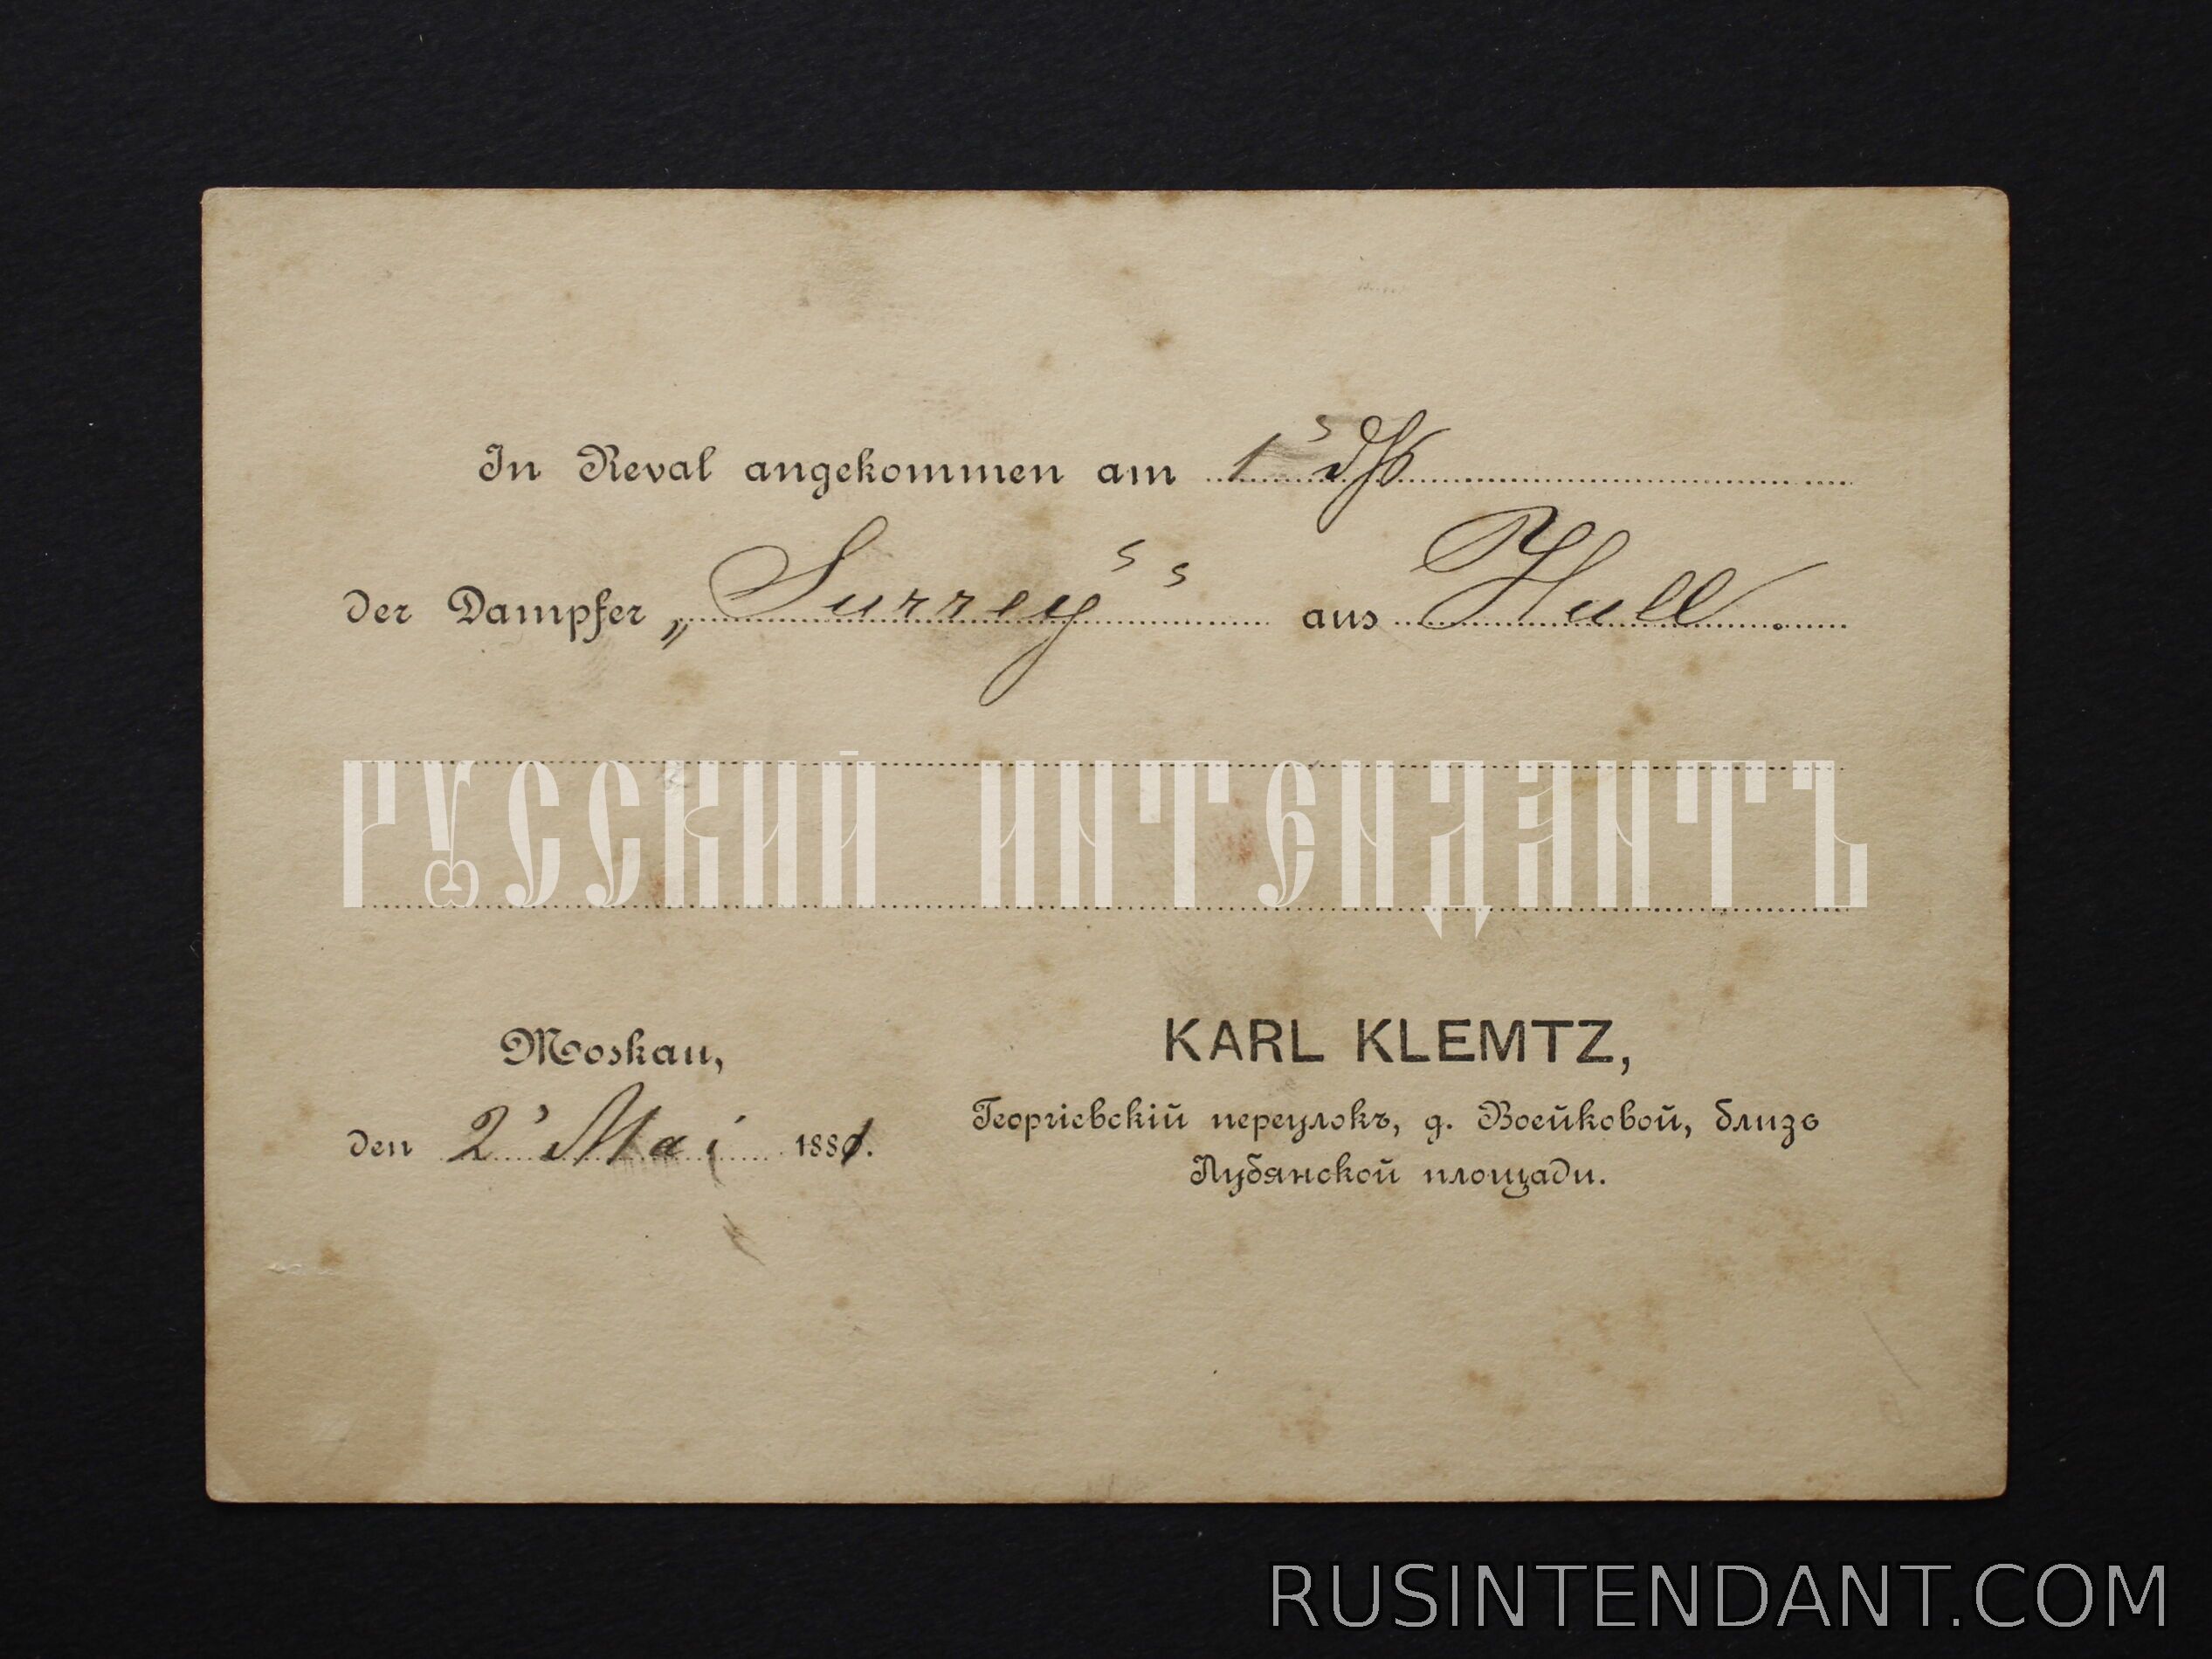 In Reval angekommen am 1s dſs
der Dampfer „Surrey" aus Hull.
РУССКИЙ ИНТЕНДАНТЪ
Moskau,
den 2' Mai 1881.
KARL KLEMTZ,
Георгіевскій переулокъ, д. Воейковой, близъ
Лубянской площади.
RUSINTENDANT.COM